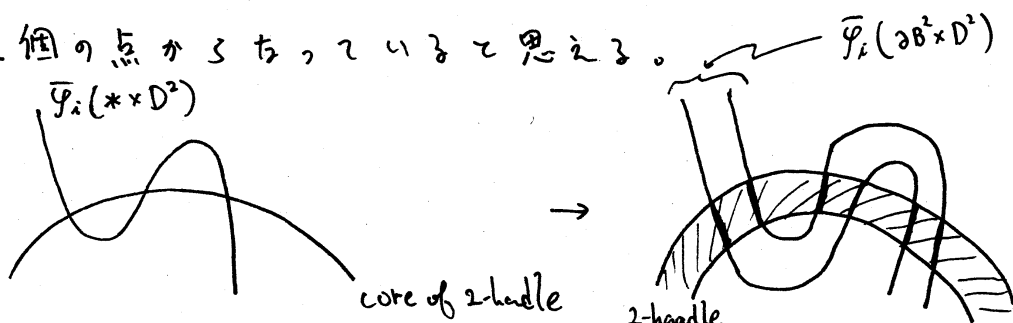 個の点からなっていると思える。
φ̄ᵢ(∂B²×D²)
φ̄ᵢ(*×D²)
→
core of 2-handle
2-handle